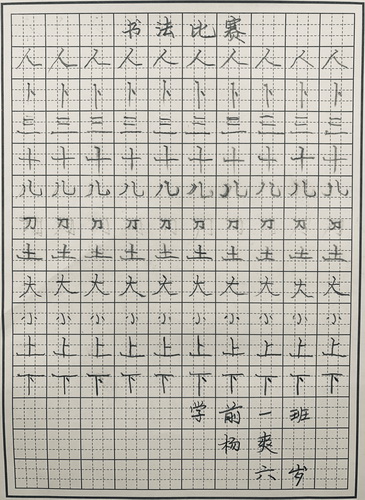 书法比赛
人人人人人人人人人人
卜卜卜卜卜卜卜卜卜卜
三三三三三三三三三三
十十十十十十十十十十
儿儿儿儿儿儿儿儿儿儿
刀刀刀刀刀刀刀刀刀刀
土土土土土土土土土土
大大大大大大大大大大
小小小小小小小小小小
上上上上上上上上上上
下下下下下下下下下下
学前一班
杨爽
六岁